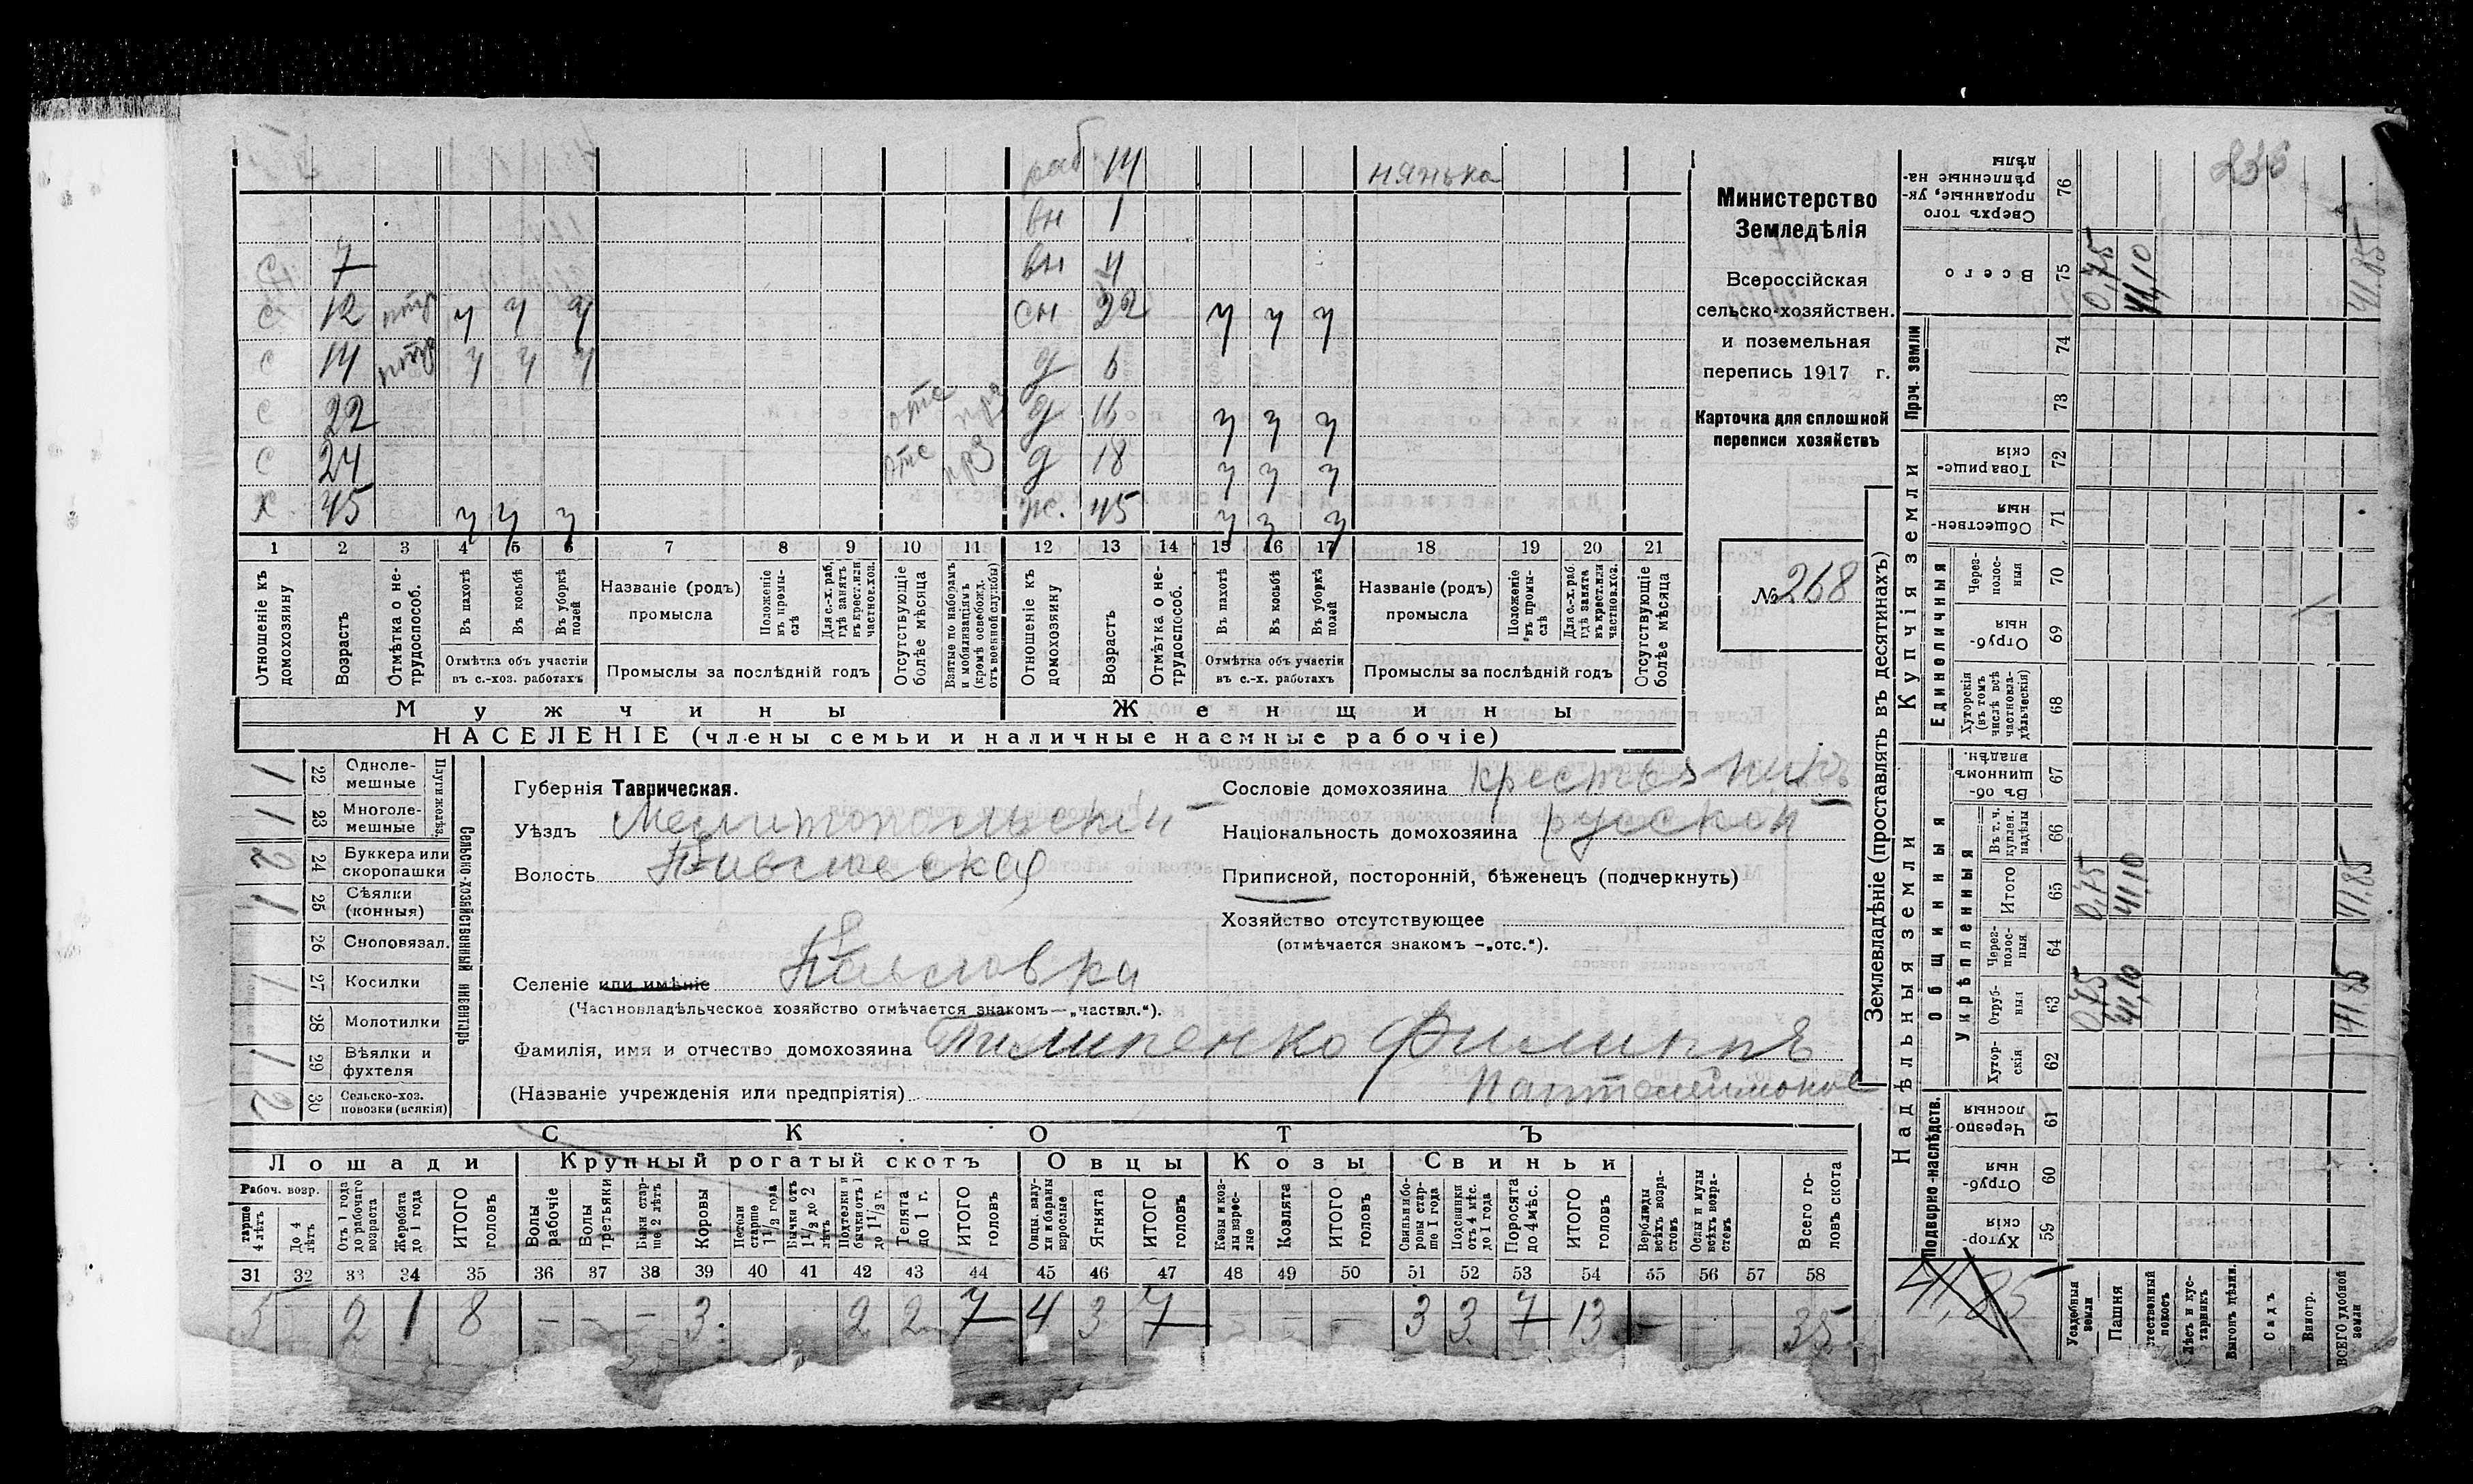 236
раб 14 нянька
вн 1
7 вн 4
с 12 птр у у у сн 22 у у у
с 14 птр у у у д 6
с 22 отс прз д 16 у у у
с 24 отс прз д 18 у у у
х 45 у у у ж. 45 у у у
1 2 3 4 5 6 7 8 9 10 11 12 13 14 15 16 17 18 19 20 21
Отношеніе къ домохозяину
Возрастъ
Отмѣтка о не-трудоспособ.
Въ пахотѣ
Въ косьбѣ
Въ уборкѣ полей
Отмѣтка объ участіи
въ с.-хоз. работахъ
Названіе (родъ)
промысла
Положеніе въ промы-слѣ
Для с.-х. раб. гдѣ занятъ въ крест. или частнов. хоз.
Промыслы за послѣдній годъ
Отсутствующіе болѣе мѣсяца
Взятые по наборамъ и мобилизаціямъ (кромѣ освобожд. отъ военной службы)
Отношеніе къ домохозяину
Возрастъ
Отмѣтка о не-трудоспособ.
Въ пахотѣ
Въ косьбѣ
Въ уборкѣ полей
Отмѣтка объ участіи
въ с.-х. работахъ
Названіе (родъ)
промысла
Положеніе въ промы-слѣ
Для с.-х. раб. гдѣ занята въ крест. или частнов. хоз.
Промыслы за послѣдній годъ
Отсутствующіе болѣе мѣсяца
Мужчины Женщины
НАСЕЛЕНІЕ (члены семьи и наличные наемные рабочіе)
Министерство
Земледѣлія
Всероссійская
сельско-хозяйствен.
и поземельная
перепись 1917 г.
Карточка для сплошной
переписи хозяйствъ
№ 268
Сельско-хозяйственный инвентарь
1 22 Одноле-мешные
1 23 Многоле-мешные
2 24 Буккера или скоропашки
1 25 Сѣялки (конныя)
26 Сноповязал.
1 27 Косилки
28 Молотилки
1 29 Вѣялки и фухтеля
2 30 Сельско-хоз. повозки (всякія)
Губернія Таврическая.
Уѣздъ Мелитопольскій
Волость Павловская
Селеніе или имѣніе Павловка
(Частновладѣльческое хозяйство отмѣчается знакомъ—„частвл.“).
Фамилія, имя и отчество домохозяина Пилипенко Филиппъ
(Названіе учрежденія или предпріятія) Пантелеймонов
Сословіе домохозяина крестьянинъ
Національность домохозяина русский
Приписной, посторонній, бѣженец (подчеркнуть)
Хозяйство отсутствующее
(отмѣчается знакомъ —„отс.“).
СКОТЪ
Лошади Крупный рогатый скотъ Овцы Козы Свиньи
Рабоч. возр.
старше 4 лѣтъ
До 4 лѣтъ
Отъ 1 года до рабочаго возраста
Жеребята до 1 года
ИТОГО головъ
Волы рабочіе
Волы третьяки
Быки стар-ше 2 лѣтъ
Коровы
Нетели старше 1 1/2 года
Бычки отъ 1 1/2 до 2 лѣтъ
Подтелки и бычки отъ 1 до 1 1/2 г.
Телята до 1 г.
ИТОГО головъ
Овцы, валу-хи и бараны взрослые
Ягнята
ИТОГО головъ
Козы и коз-лы взрос-лые
Козлята
ИТОГО головъ
Свиньи и бо-ровы стар-ше 1 года
Подсвинки отъ 4 мѣс. до 1 года
Поросята до 4 мѣс.
ИТОГО головъ
Верблюды всѣхъ возра-стовъ
Ослы и мулы всѣхъ возра-стовъ
Всего го-ловъ скота
31 32 33 34 35 36 37 38 39 40 41 42 43 44 45 46 47 48 49 50 51 52 53 54 55 56 57 58
5 – 2 1 8 – – – 3. 2 2 7 4 3 7 – – – 3 3 7 13 – – 35
Землевладѣніе (проставлять въ десятинахъ)
Купчія земли
Надѣльныя земли
Сверхъ того проданные, ук-рѣпленные на-дѣлы 76
Всего 75 0,75 41,10 41.85
Проч. земли 74 73
Товарище-скія 72
Обществен-ныя 71
Единоличныя
Через-полос-ныя 70
Отруб-ныя 69
Хуторскія (въ томъ числѣ всѣ частновла-дѣльческія) 68
Общинныя
Въ об-щинномъ владѣн. 67
Укрѣпленныя
Въ т. ч. куплен. надѣлы 66
Итого 65 0,75 41,10 41,85
Через-полос-ныя 64
Отруб-ныя 63 0,75 41,10 41,85
Хутор-скія 62
Подворно-наслѣдств.
Черезпо-лосныя 61
Отруб-ныя 60
Хутор-скія 59
41,85
Усадебныя земли
Пашня
Естественный покосъ
Лѣсъ и кус-тарникъ
Выгонъ цѣлин.
Садъ
Виногр.
ВСЕГО удобной земли